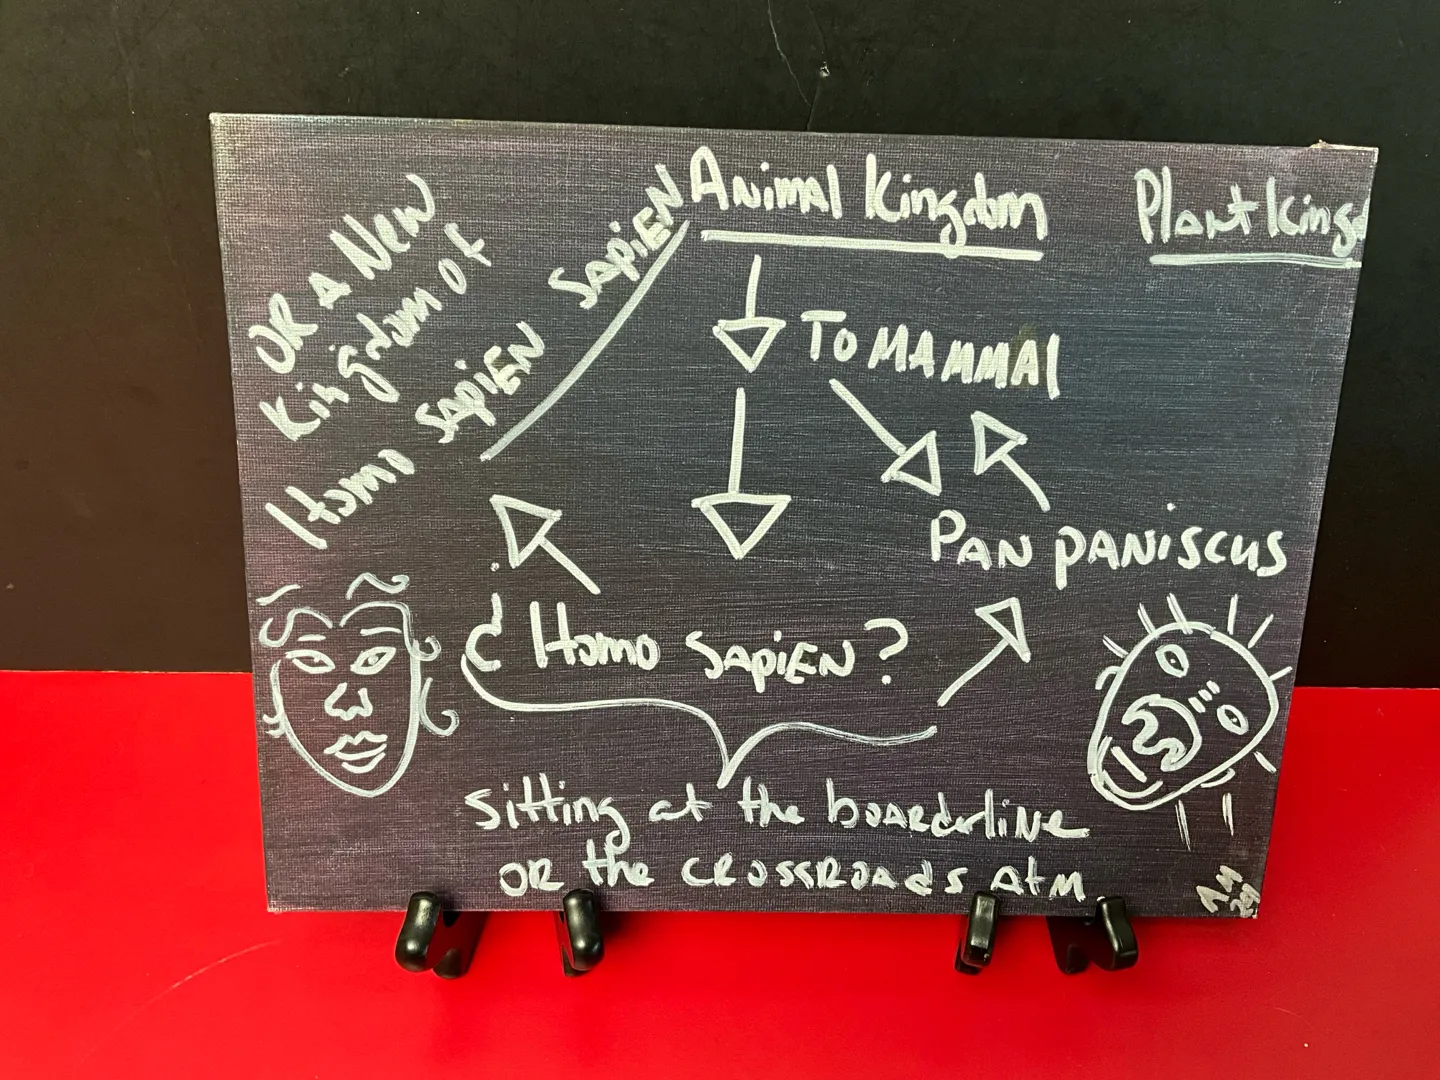 Animal Kingdom
Plant Kingd
OR A New
Kingdom Of
Homo SapiEN SapiEN
To MAMMAl
PAN PANiscus
¿ Homo SapiEN ?
Sitting at the boarderliNe
OR the CROSSROADS AtM